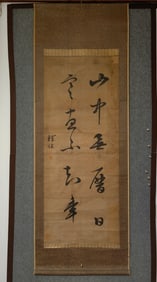 山中無曆日
寒盡不知年